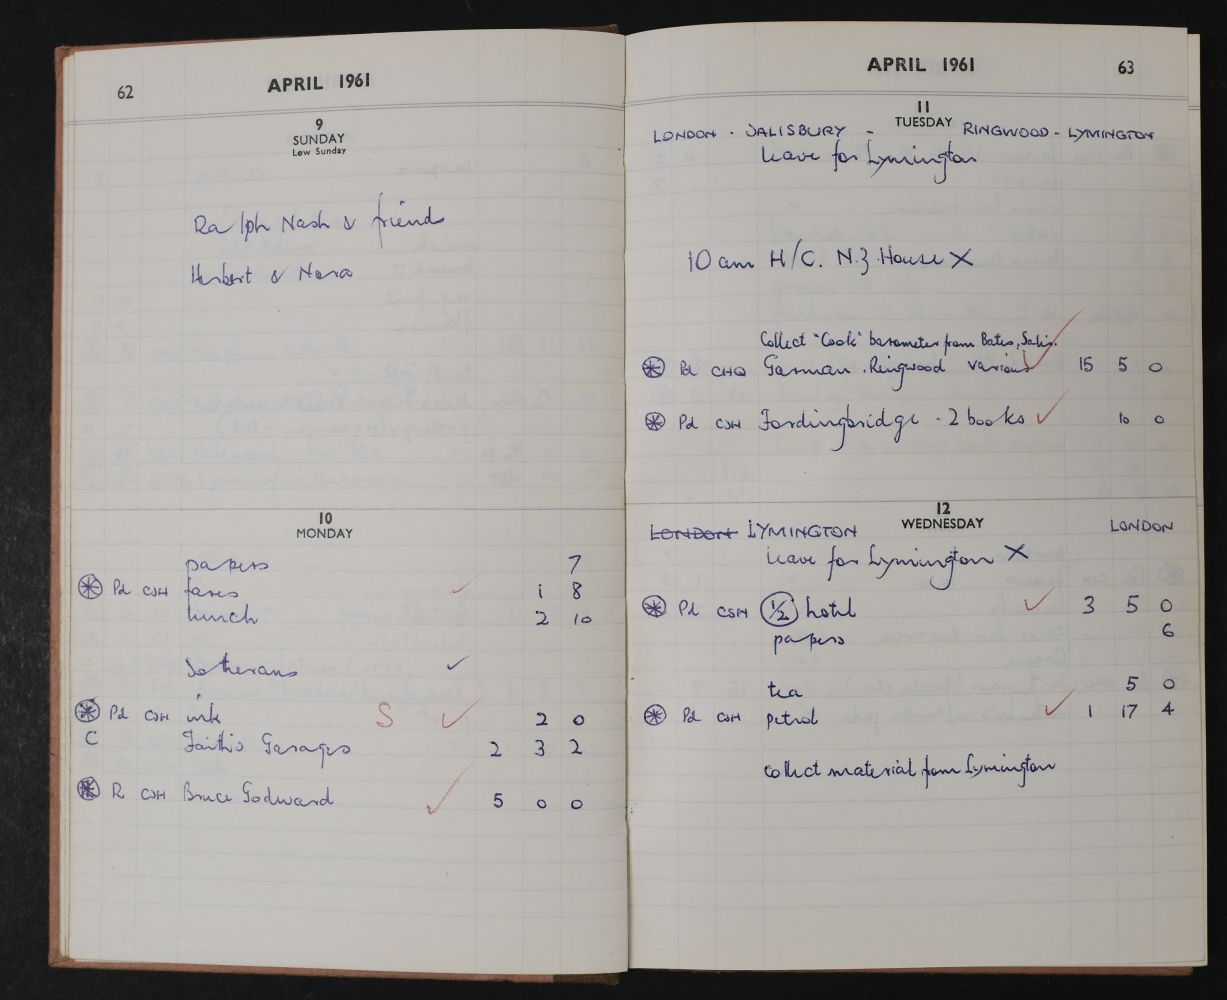 62
APRIL 1961
9
SUNDAY
Low Sunday
Ralph Nash & friends
Herbert & Nora
10
MONDAY
papers 7
Pd CSH fares 1 8
lunch 2 10
Sotherans ✓
Pd CSH ink S ✓ 2 0
C Faithis Garages 2 3 2
R CSH Bruce Godward ✓ 5 0 0
APRIL 1961
63
11
TUESDAY
LONDON - SALISBURY - RINGWOOD - LYMINGTON
leave for Lymington
10 am H/C. N.Z. House X
Collect "Cook" barometer from Bates, Salis.
Pd CHQ Garman. Ringwood various ✓ 15 5 0
Pd CSH Fordingbridge - 2 books ✓ 10 0
12
WEDNESDAY
LONDON LYMINGTON LONDON
leave for Lymington X
Pd CSH 1/2 hotel ✓ 3 5 0
papers 6
tea 5 0
Pd CSH petrol ✓ 1 17 4
collect material from Lymington